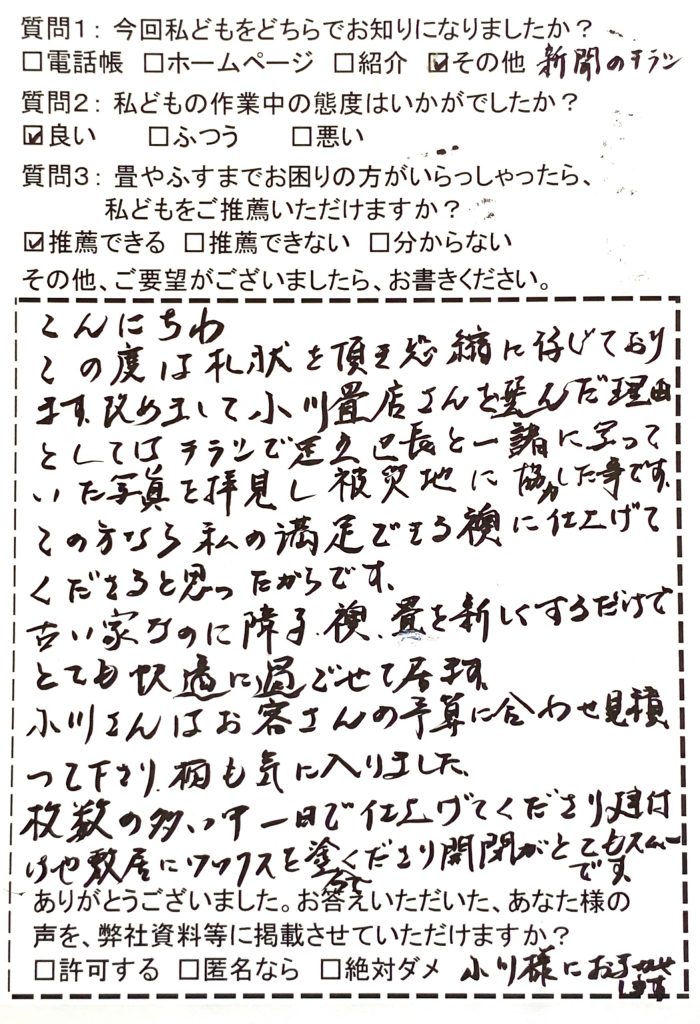 質問1：今回私どもをどちらでお知りになりましたか？
□電話帳 □ホームページ □紹介 ☑その他 新聞のチラシ
質問2：私どもの作業中の態度はいかがでしたか？
☑良い □ふつう □悪い
質問3：畳やふすまでお困りの方がいらっしゃったら、
私どもをご推薦いただけますか？
☑推薦できる □推薦できない □分からない
その他、ご要望がございましたら、お書きください。
こんにちわ
この度は礼状を頂き恐縮に存じており
ます。改めまして小川畳店さんを選んだ理由
としてはチラシで足立区長と一諸に写って
いた写真を拝見し被災地に協力した事です。
この方なら私の満足できる襖に仕上げて
くださると思ったからです。
古い家なのに障子、襖、畳を新しくするだけで
とても快適に過ごせて居ます。
小川さんはお客さんの予算に合わせ見積
って下さり、柄も気に入りました。
枚数の多い中一日で仕上げてくださり、建付
けや敷居にワックスを塗ってくださり開閉がとてもスムーズです。
ありがとうございました。お答えいただいた、あなた様の
声を、弊社資料等に掲載させていただけますか？
□許可する □匿名なら □絶対ダメ 小川様にお